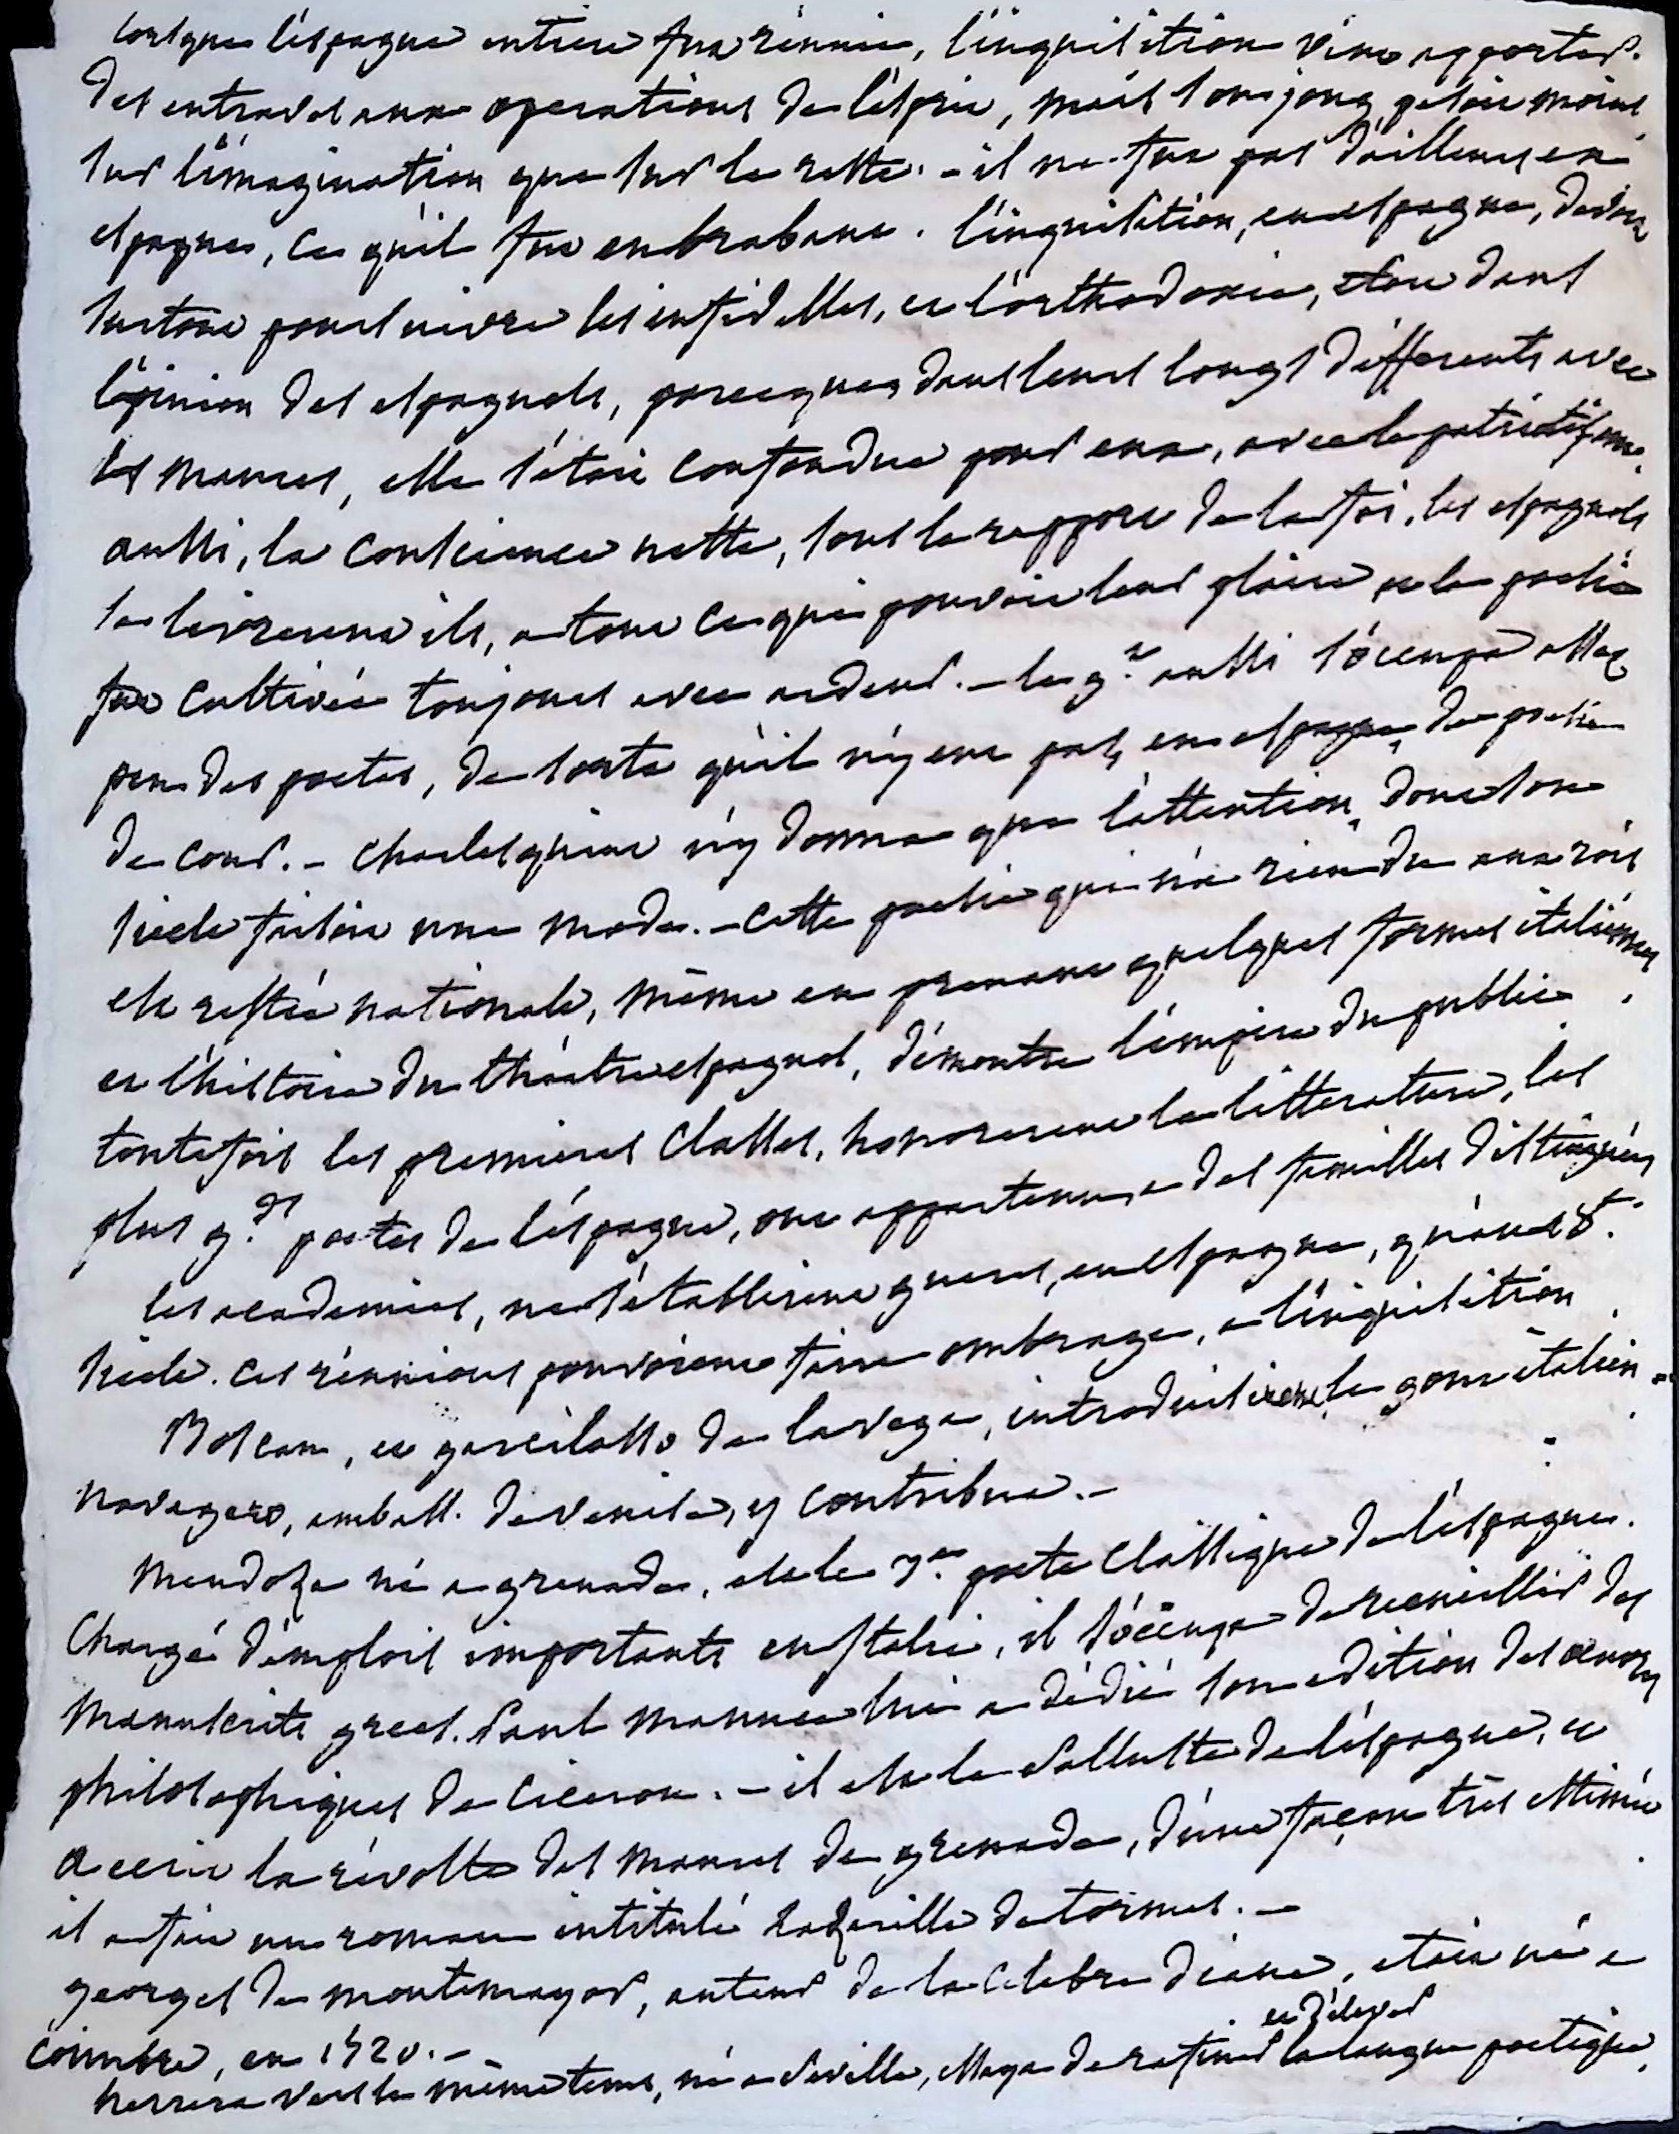 lorsque l'éspagne entiere fut réunie, l'inquisition vint apporter
des entraves aux operations de l'esprit, mais son joug pesoit moins
sur l'imagination que sur le reste. – il ne fut pas d'ailleurs en
espagne, ce qu'il fut en brabant. l'inquisition, en espagne, devoit
surtout poursuivre les infidelles, et l'orthodoxie, étoit dans
l'opinion des espagnols, parceque dans leurs longs différents avec
les maures, elle s'étoit confondue pour eux, avec le patriotisme.
aussi, la conscience nette, sous le rapport de la foi, les espagnols
se livrerent ils, a tout ce qui pouvoit leur plaire et la poesie
fut cultivée toujours avec ardeur. – le gt aussi s'occupa assez
peu des poetes, de sorte qu'il n'y eut pas, en espagne, de poesie
de cour. – charlesquint n'y donna que l'attention, dont son
siecle faisoit une mode. – cette poesie qui n'a rien du aux rois
est restée nationale, même en prenant quelques formes italiennes
et l'histoire du théatre espagnol, démontre l'empire du public.
toutefois les premieres classes, honorerent la litterature, les
plus gds poetes de l'éspagne, ont appartenu a des familles distinguées
les academies, ne s'établirent gueres, en espagne, qu'au 18e.
siecle. ces réunions pouvoient faire ombrage, a l'inquisition.
Boscan, et garcilasso de la vega, introduisirent le gout italien
navagero, ambass. de venise, y contribua. –
mendoza né a grenade, est le 3e. poete classique de l'éspagne.
Chargé d'emplois importants en italie, il s'occupa de recueillir des
manuscrits grecs. Paul manuce lui a dédié son edition des oeuvres
philosophiques de Ciceron. – il est le Salluste de l'éspagne, et
a ecrit la révolte des maures de grenade, d'une façon très estimée
il a fait un roman intitulé lazarille de tormes. –
georges de montemayor, auteur de la celebre diane, etoit né a
Coimbre, en 1520. –
et d'elever
herrera vers le même tems, né a Seville, essaya de rafiner la langue poetique,